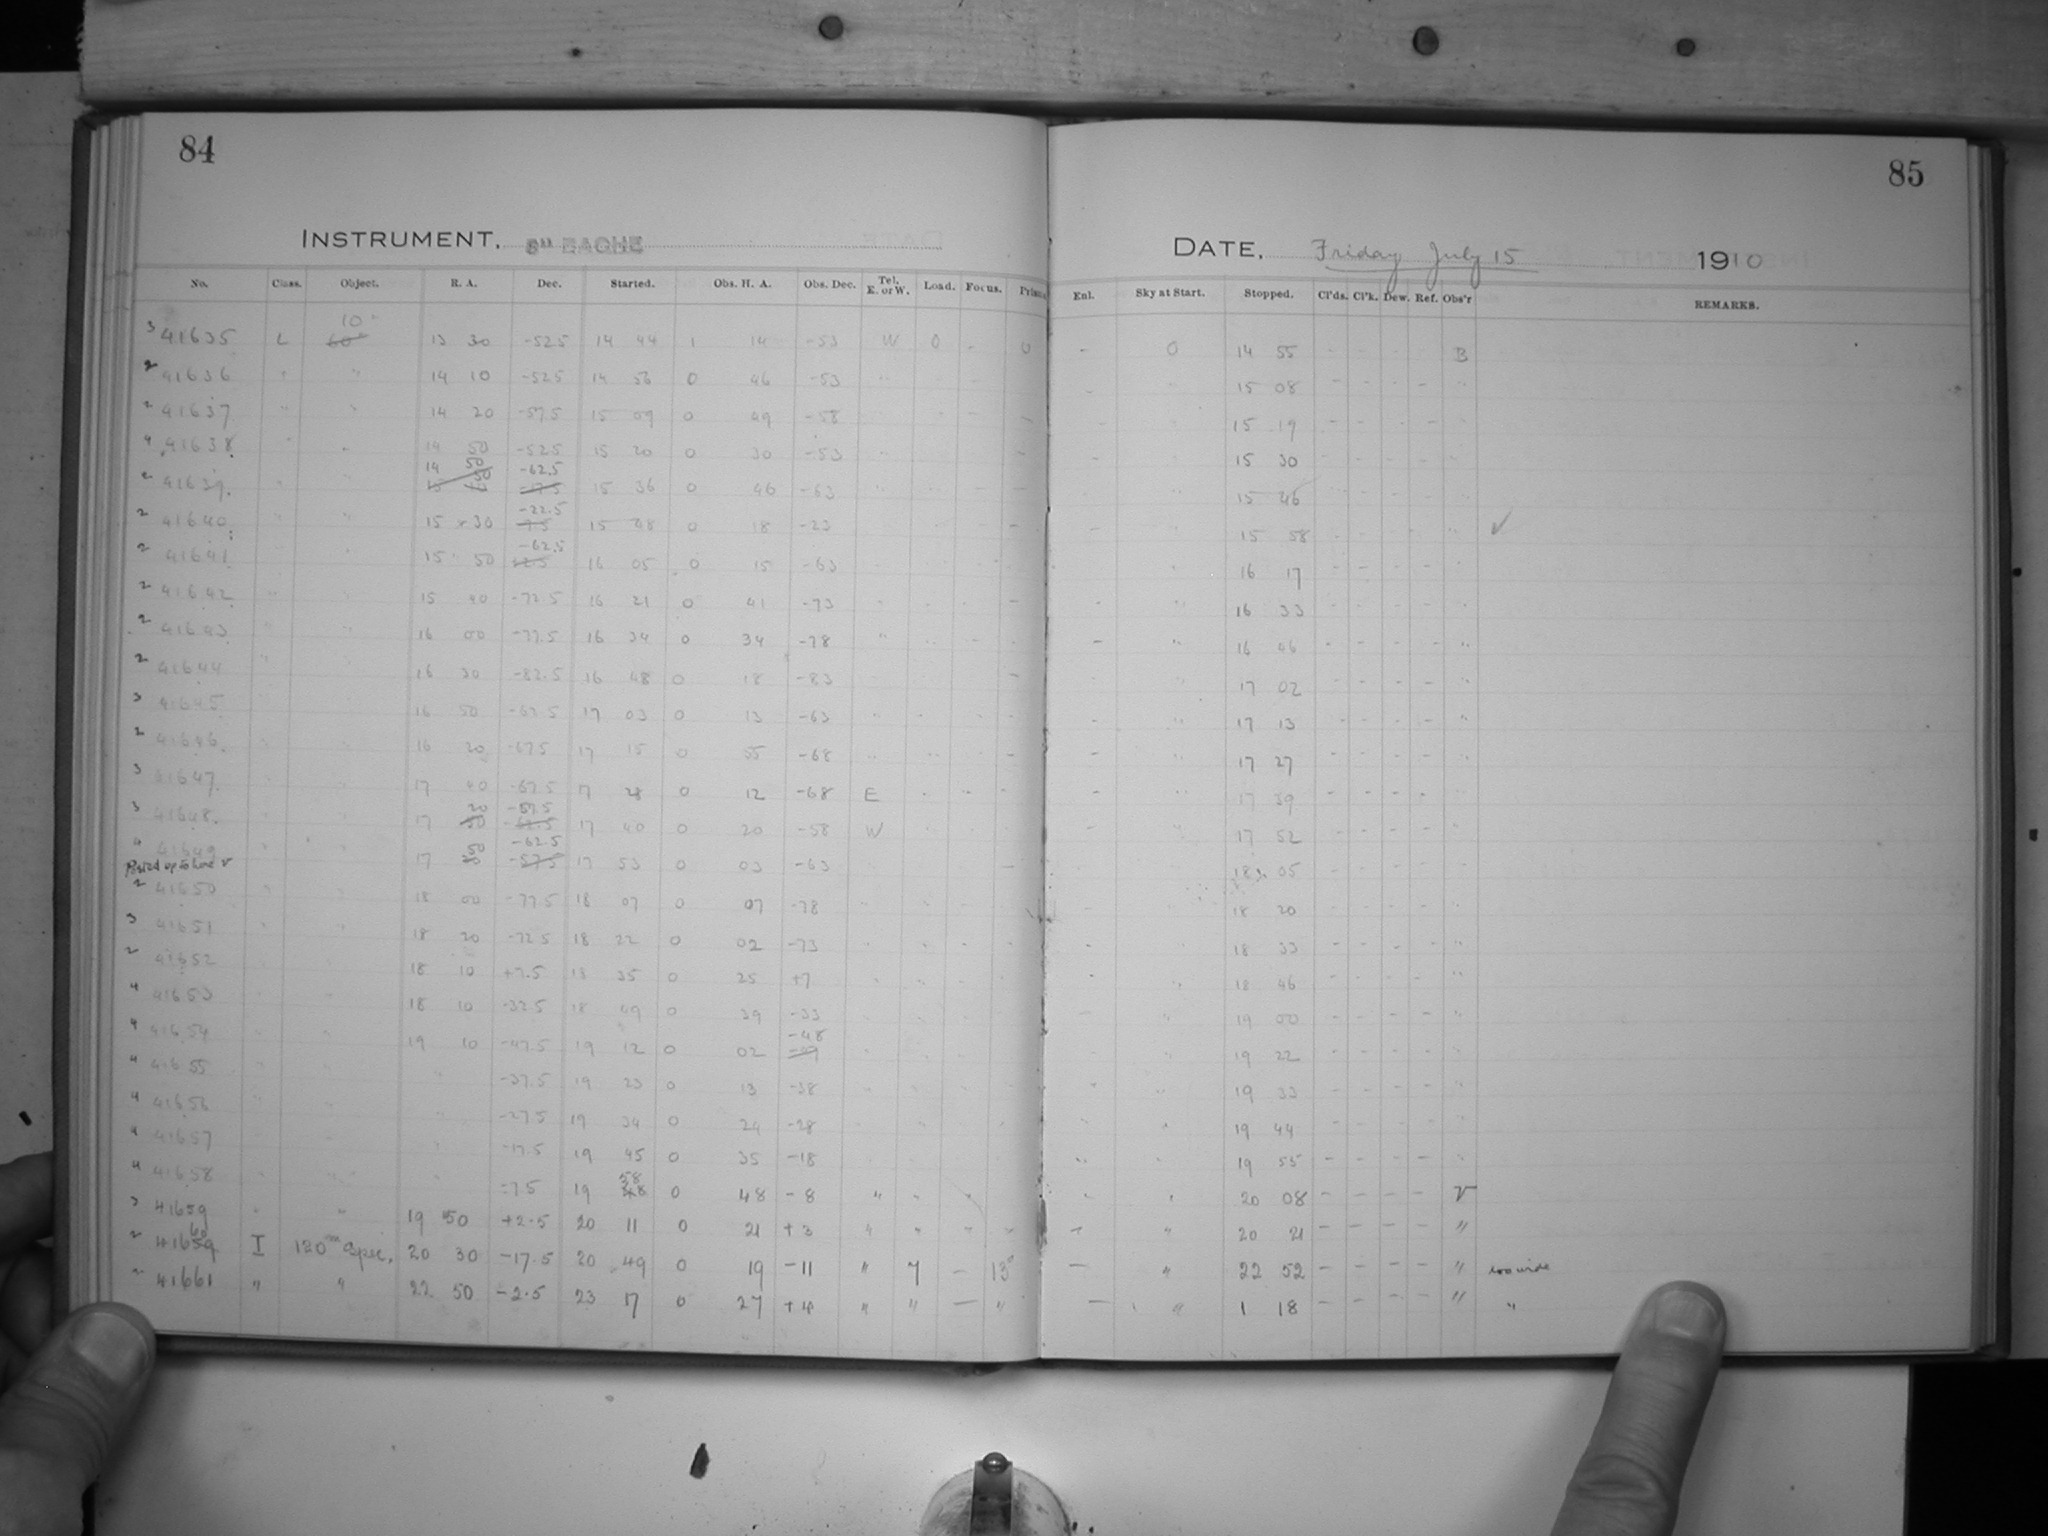 84
85
INSTRUMENT, 8" BACHE
DATE, Friday July 15 1910
No. Class. Object. R. A. Dec. Started. Obs. H. A. Obs. Dec. Tel. E. or W. Load. Focus. Enl. Sky at Start. Stopped. Cl'ds. Cl'k. Dew. Ref. Obs'r REMARKS.
10
3 41635 L 60 13 30 -52.5 14 44 1 14 -53 W 0 - 0 - 0 14 55 - - - - B
2 41636 " " 14 10 -52.5 14 56 0 46 -53 15 08 - - - - "
2 41637 " " 14 20 -57.5 15 09 0 49 -58 15 19 - - - - "
4 41638 " " 14 50 -52.5 15 20 0 30 -53 15 30 - - - - "
14 50 -62.5
2 41639 " " 15 36 0 46 -63 15 46 - - - - "
-22.5
2 41640 " " 15 30 15 48 0 18 -23 15 58 - - - - " ✓
-62.5
2 41641 " 15 50 16 05 0 15 -63 16 17 - - - - "
2 41642 " " 15 40 -72.5 16 21 0 41 -73 16 33 - - - - "
2 41643 " " 16 00 -77.5 16 34 0 34 -78 16 46 - - - - "
2 41644 " 16 30 -82.5 16 48 0 18 -83 17 02 - - - - "
3 41645 16 50 -62.5 17 03 0 13 -63 17 13 - - - - "
2 41646 " " 16 20 -67.5 17 15 0 55 -68 17 27 - - - - "
3 41647 " 17 40 -67.5 17 28 0 12 -68 E 17 39 - - - - "
20 -57.5
3 41648 17 50 -62.5 17 40 0 20 -58 W 17 52 - - - -
50 -62.5
4 41649 17 20 -57.5 17 53 0 03 -63 18 05 - - - -
2 41650 18 00 -77.5 18 07 0 07 -78 18 20 - - - -
3 41651 18 20 -72.5 18 22 0 02 -73 18 33 - - - - "
2 41652 18 10 +7.5 18 35 0 25 +7 18 46 - - - - "
4 41653 18 10 -32.5 18 49 0 39 -33 19 00 - - - - "
-48
4 41654 19 10 -47.5 19 12 0 02 19 22 - - - - "
4 41655 " -37.5 19 23 0 13 -38 19 33 - - - - "
4 41656 " -27.5 19 34 0 24 -28 19 44 - - - - "
4 41657 " -17.5 19 45 0 35 -18 19 55 - - - - "
58
4 41658 " -7.5 19 48 0 48 -8 " " 20 08 - - - - V
3 41659 " " 19 50 +2.5 20 11 0 21 +3 " " 20 21 - - - - "
60
2 41659 I 120m Spec. 20 30 -17.5 20 49 0 19 -11 " 7 - 13° - " 22 52 - - - - " too wide
2 41661 " " 22 50 -2.5 23 17 0 27 +4 " " - " - " 1 18 - - - - " "